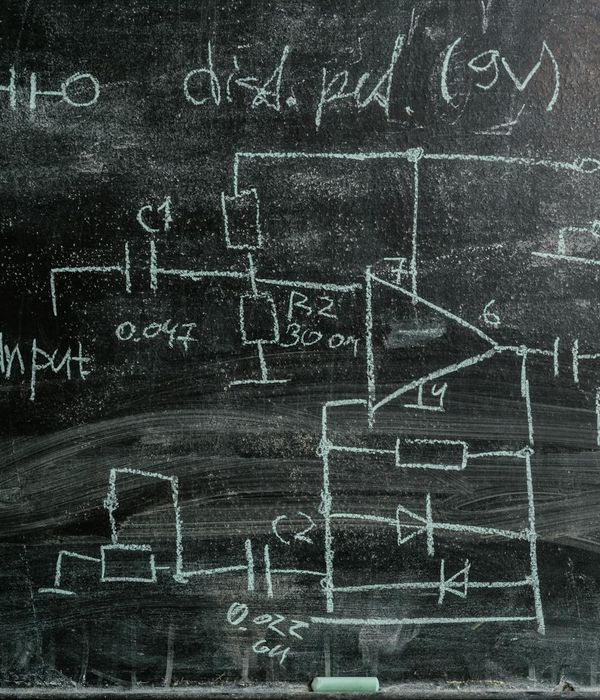 dist. ped. (9V)
C1
7
R2
6
Input
0.047
30 om
14
C2
0.022